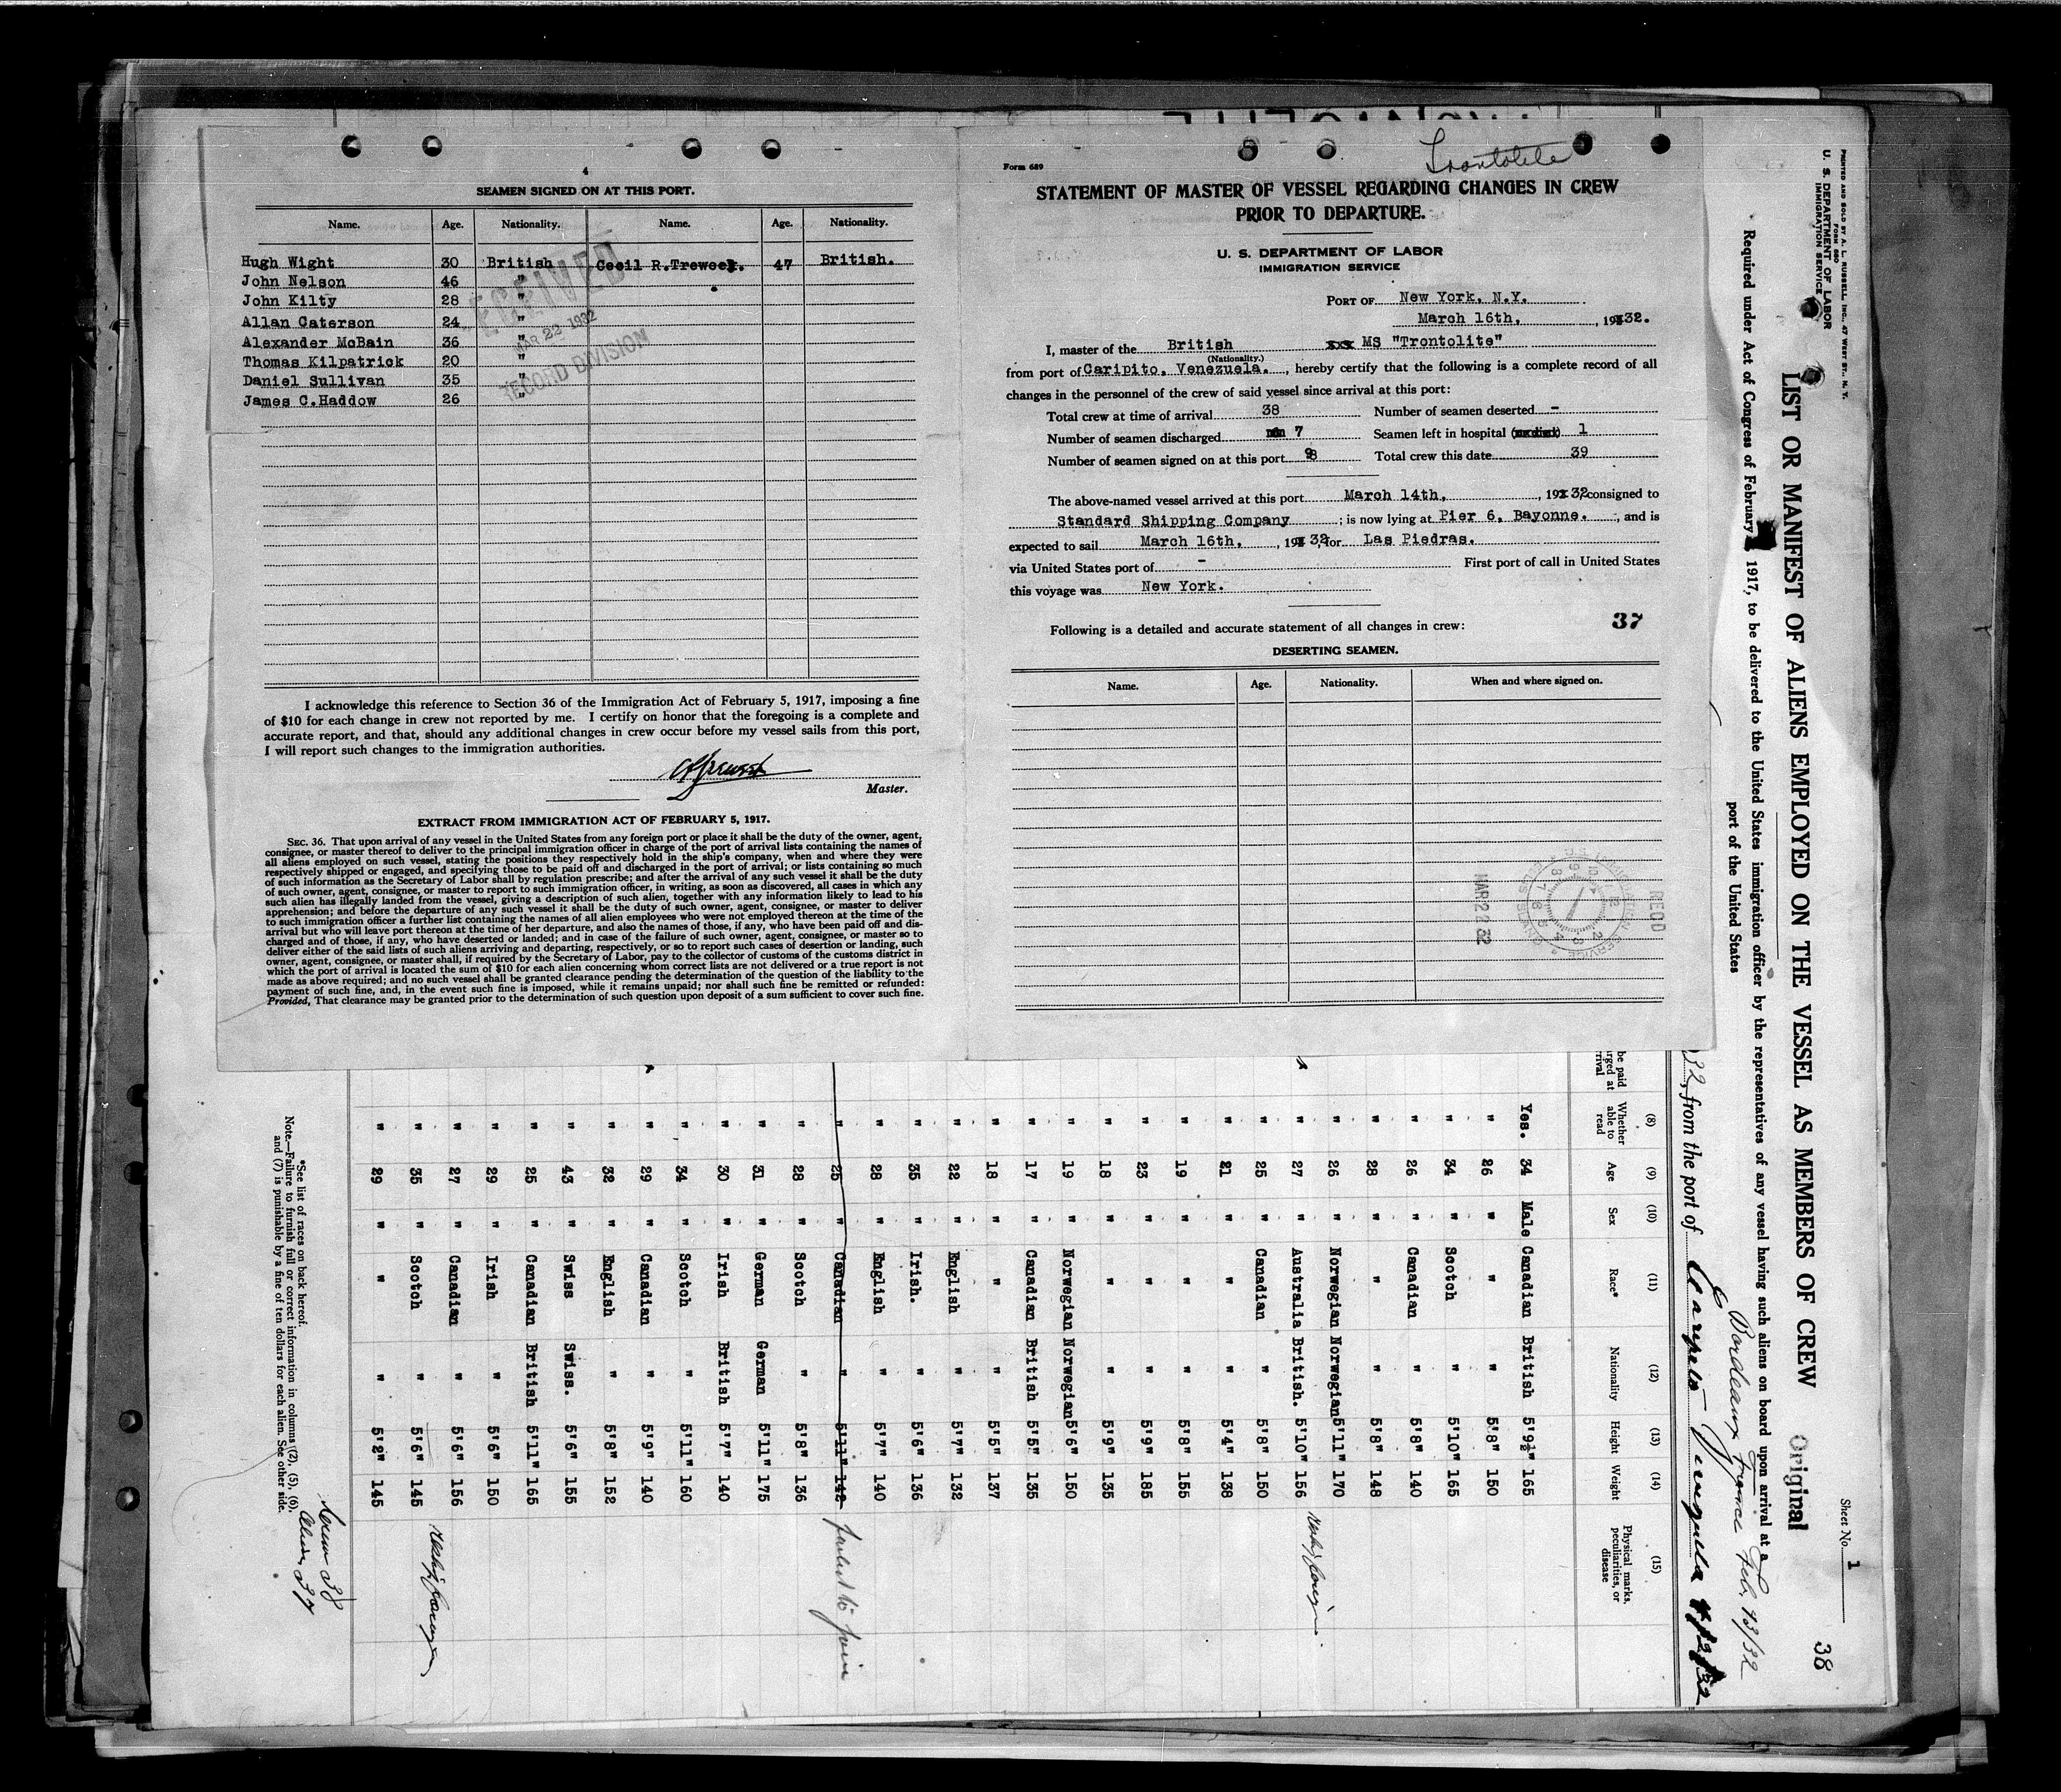 4
SEAMEN SIGNED ON AT THIS PORT.
Name. Age. Nationality. Name. Age. Nationality.
Hugh Wight 30 British Cecil R.Treweek. 47 British.
John Nelson 46 "
John Kilty 28 "
Allan Caterson 24 "
Alexander McBain 36 "
Thomas Kilpatrick 20 "
Daniel Sullivan 35 "
James C.Haddow 26 "
RECEIVED
MAR 22 1932
RECORD DIVISION
I acknowledge this reference to Section 36 of the Immigration Act of February 5, 1917, imposing a fine
of $10 for each change in crew not reported by me. I certify on honor that the foregoing is a complete and
accurate report, and that, should any additional changes in crew occur before my vessel sails from this port,
I will report such changes to the immigration authorities.
Master.
EXTRACT FROM IMMIGRATION ACT OF FEBRUARY 5, 1917.
SEC. 36. That upon arrival of any vessel in the United States from any foreign port or place it shall be the duty of the owner, agent,
consignee, or master thereof to deliver to the principal immigration officer in charge of the port of arrival lists containing the names of
all aliens employed on such vessel, stating the positions they respectively hold in the ship's company, when and where they were
respectively shipped or engaged, and specifying those to be paid off and discharged in the port of arrival; or lists containing so much
of such information as the Secretary of Labor shall by regulation prescribe; and after the arrival of any such vessel it shall be the duty
of such owner, agent, consignee, or master to report to such immigration officer, in writing, as soon as discovered, all cases in which any
such alien has illegally landed from the vessel, giving a description of such alien, together with any information likely to lead to his
apprehension; and before the departure of any such vessel it shall be the duty of such owner, agent, consignee, or master to deliver
to such immigration officer a further list containing the names of all alien employees who were not employed thereon at the time of the
arrival but who will leave port thereon at the time of her departure, and also the names of those, if any, who have been paid off and dis-
charged and of those, if any, who have deserted or landed; and in case of the failure of such owner, agent, consignee, or master so to
deliver either of the said lists of such aliens arriving and departing, respectively, or so to report such cases of desertion or landing, such
owner, agent, consignee, or master shall, if required by the Secretary of Labor, pay to the collector of customs of the customs district in
which the port of arrival is located the sum of $10 for each alien concerning whom correct lists are not delivered or a true report is not
made as above required; and no such vessel shall be granted clearance pending the determination of the question of the liability to the
payment of such fine, and, in the event such fine is imposed, while it remains unpaid; nor shall such fine be remitted or refunded:
Provided, That clearance may be granted prior to the determination of such question upon deposit of a sum sufficient to cover such fine.
Form 689
Trontolite
STATEMENT OF MASTER OF VESSEL REGARDING CHANGES IN CREW
PRIOR TO DEPARTURE.
U. S. DEPARTMENT OF LABOR
IMMIGRATION SERVICE
PORT OF New York, N.Y.
March 16th, , 1932.
I, master of the British MS "Trontolite"
(Nationality.)
from port of Caripito, Venezuela. , hereby certify that the following is a complete record of all
changes in the personnel of the crew of said vessel since arrival at this port:
Total crew at time of arrival 38 Number of seamen deserted -
Number of seamen discharged 7 Seamen left in hospital 1
Number of seamen signed on at this port Total crew this date 39
The above-named vessel arrived at this port March 14th, , 1932 consigned to
Standard Shipping Company ; is now lying at Pier 6, Bayonne. , and is
expected to sail March 16th, , 1932 for Las Piedras.
via United States port of - First port of call in United States
this voyage was New York.
37
Following is a detailed and accurate statement of all changes in crew:
DESERTING SEAMEN.
Name. Age. Nationality. When and where signed on.
REC'D
MAR 22 32
PRINTED AND SOLD BY A. L. RUSSELL, INC., 47 WEST ST., N. Y.
FORM 680
U. S. DEPARTMENT OF LABOR
IMMIGRATION SERVICE
Sheet No. 1
38
LIST OR MANIFEST OF ALIENS EMPLOYED ON THE VESSEL AS MEMBERS OF CREW Original
Required under Act of Congress of February 1917, to be delivered to the United States immigration officer by the representatives of any vessel having such aliens on board upon arrival at a
port of the United States
Bordeaux France Feb. 13/32
32, from the port of Caripito
(8) (9) (10) (11) (12) (13) (14) (15)
Whether able to read Age Sex Race* Nationality Height Weight Physical marks, peculiarities, or disease
Yes. 34 Male Canadian British 5'9½" 165
" 26 " " " 5'8" 150
" 34 " Scotch " 5'10" 165
" 26 " Canadian " 5'8" 140
" 28 " " " 5'8" 148
" 26 " Norwegian Norwegian 5'11" 170
" 27 " Australia British. 5'10" 156
" 25 " Canadian " 5'8" 150
" 21 " " " 5'4" 138
" 19 " " " 5'8" 155
" 23 " " " 5'9" 185
" 18 " " " 5'9" 135
" 19 " Norwegian Norwegian 5'6" 150
" 17 " Canadian British 5'5" 135
" 18 " " " 5'5" 137
" 22 " English " 5'7" 132
" 35 " Irish. " 5'6" 136
" 28 " English " 5'7" 140
" 25 " Canadian " 5'11" 142 failed to join
" 28 " Scotch " 5'8" 136
" 31 " German German 5'11" 175
" 30 " Irish British 5'7" 140
" 34 " Scotch " 5'11" 160
" 29 " Canadian " 5'9" 140
" 32 " English " 5'8" 152
" 43 " Swiss Swiss. 5'6" 155
" 25 " Canadian British 5'11" 165
" 29 " Irish " 5'6" 150
" 27 " Canadian " 5'6" 156
" 35 " Scotch " 5'6" 145
" 29 " " " 5'2" 145
*See list of races on back hereof.
Note.—Failure to furnish full or correct information in columns (2), (5), (6),
and (7) is punishable by a fine of ten dollars for each alien. See other side.
Crew 38
Aliens 37